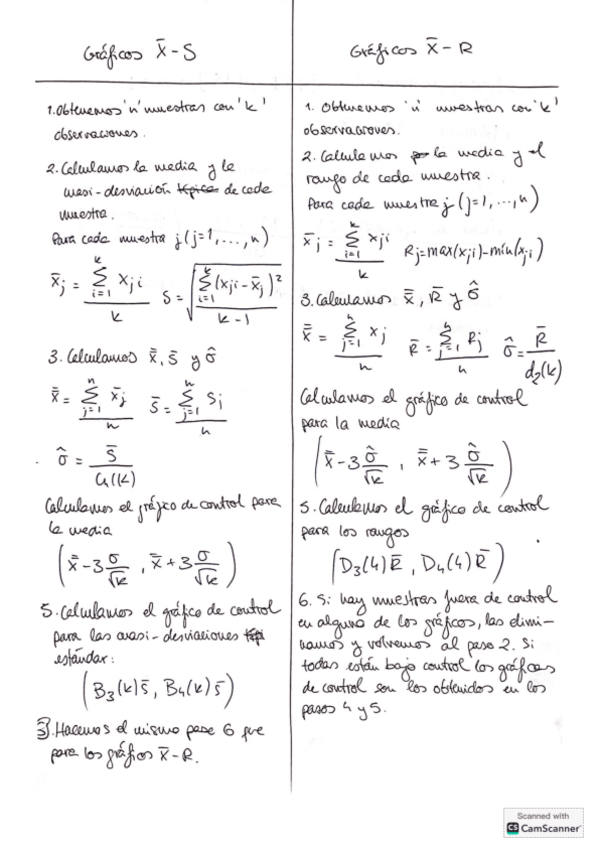 Gráficos X̄ - S
1. Obtenemos 'n' muestras con 'k'
observaciones.
2. Calculamos la media y la
cuasi-desviación típica de cada
muestra.
Para cada muestra j (j=1,...,n)
x̄j = Σ(i=1→k) xji / k    S = √( Σ(i=1→k) (xji - x̄j)² / (k-1) )
3. Calculamos x̿, s̄ y σ̂
x̿ = Σ(j=1→n) x̄j / n    s̄ = Σ(j=1→n) Sj / n
σ̂ = s̄ / C4(k)
Calculamos el gráfico de control para
la media
(x̿ - 3 σ/√k , x̿ + 3 σ/√k)
5. Calculamos el gráfico de control
para las cuasi-desviaciones típi
estándar:
(B3(k) s̄, B4(k) s̄)
Hacemos el mismo paso 6 que
para los gráficos X̄ - R.
Gráficos X̄ - R
1. Obtenemos 'n' muestras con 'k'
observaciones.
2. Calculamos la media y el
rango de cada muestra.
Para cada muestra j (j=1,...,n)
x̄j = Σ(i=1→k) xji / k    Rj = max(xji) - min(xji)
3. Calculamos x̿, R̄ y σ̂
x̿ = Σ(j=1→n) xj / n    R̄ = Σ(j=1→n) Rj / n    σ̂ = R̄ / d2(k)
Calculamos el gráfico de control
para la media
(x̿ - 3 σ̂/√k , x̿ + 3 σ̂/√k)
5. Calculamos el gráfico de control
para los rangos
(D3(4) R̄, D4(4) R̄)
6. Si hay muestras fuera de control
en alguno de los gráficos, las elimi-
namos y volvemos al paso 2. Si
todas están bajo control los gráficos
de control son los obtenidos en los
pasos 4 y 5.
Scanned with
CS CamScanner